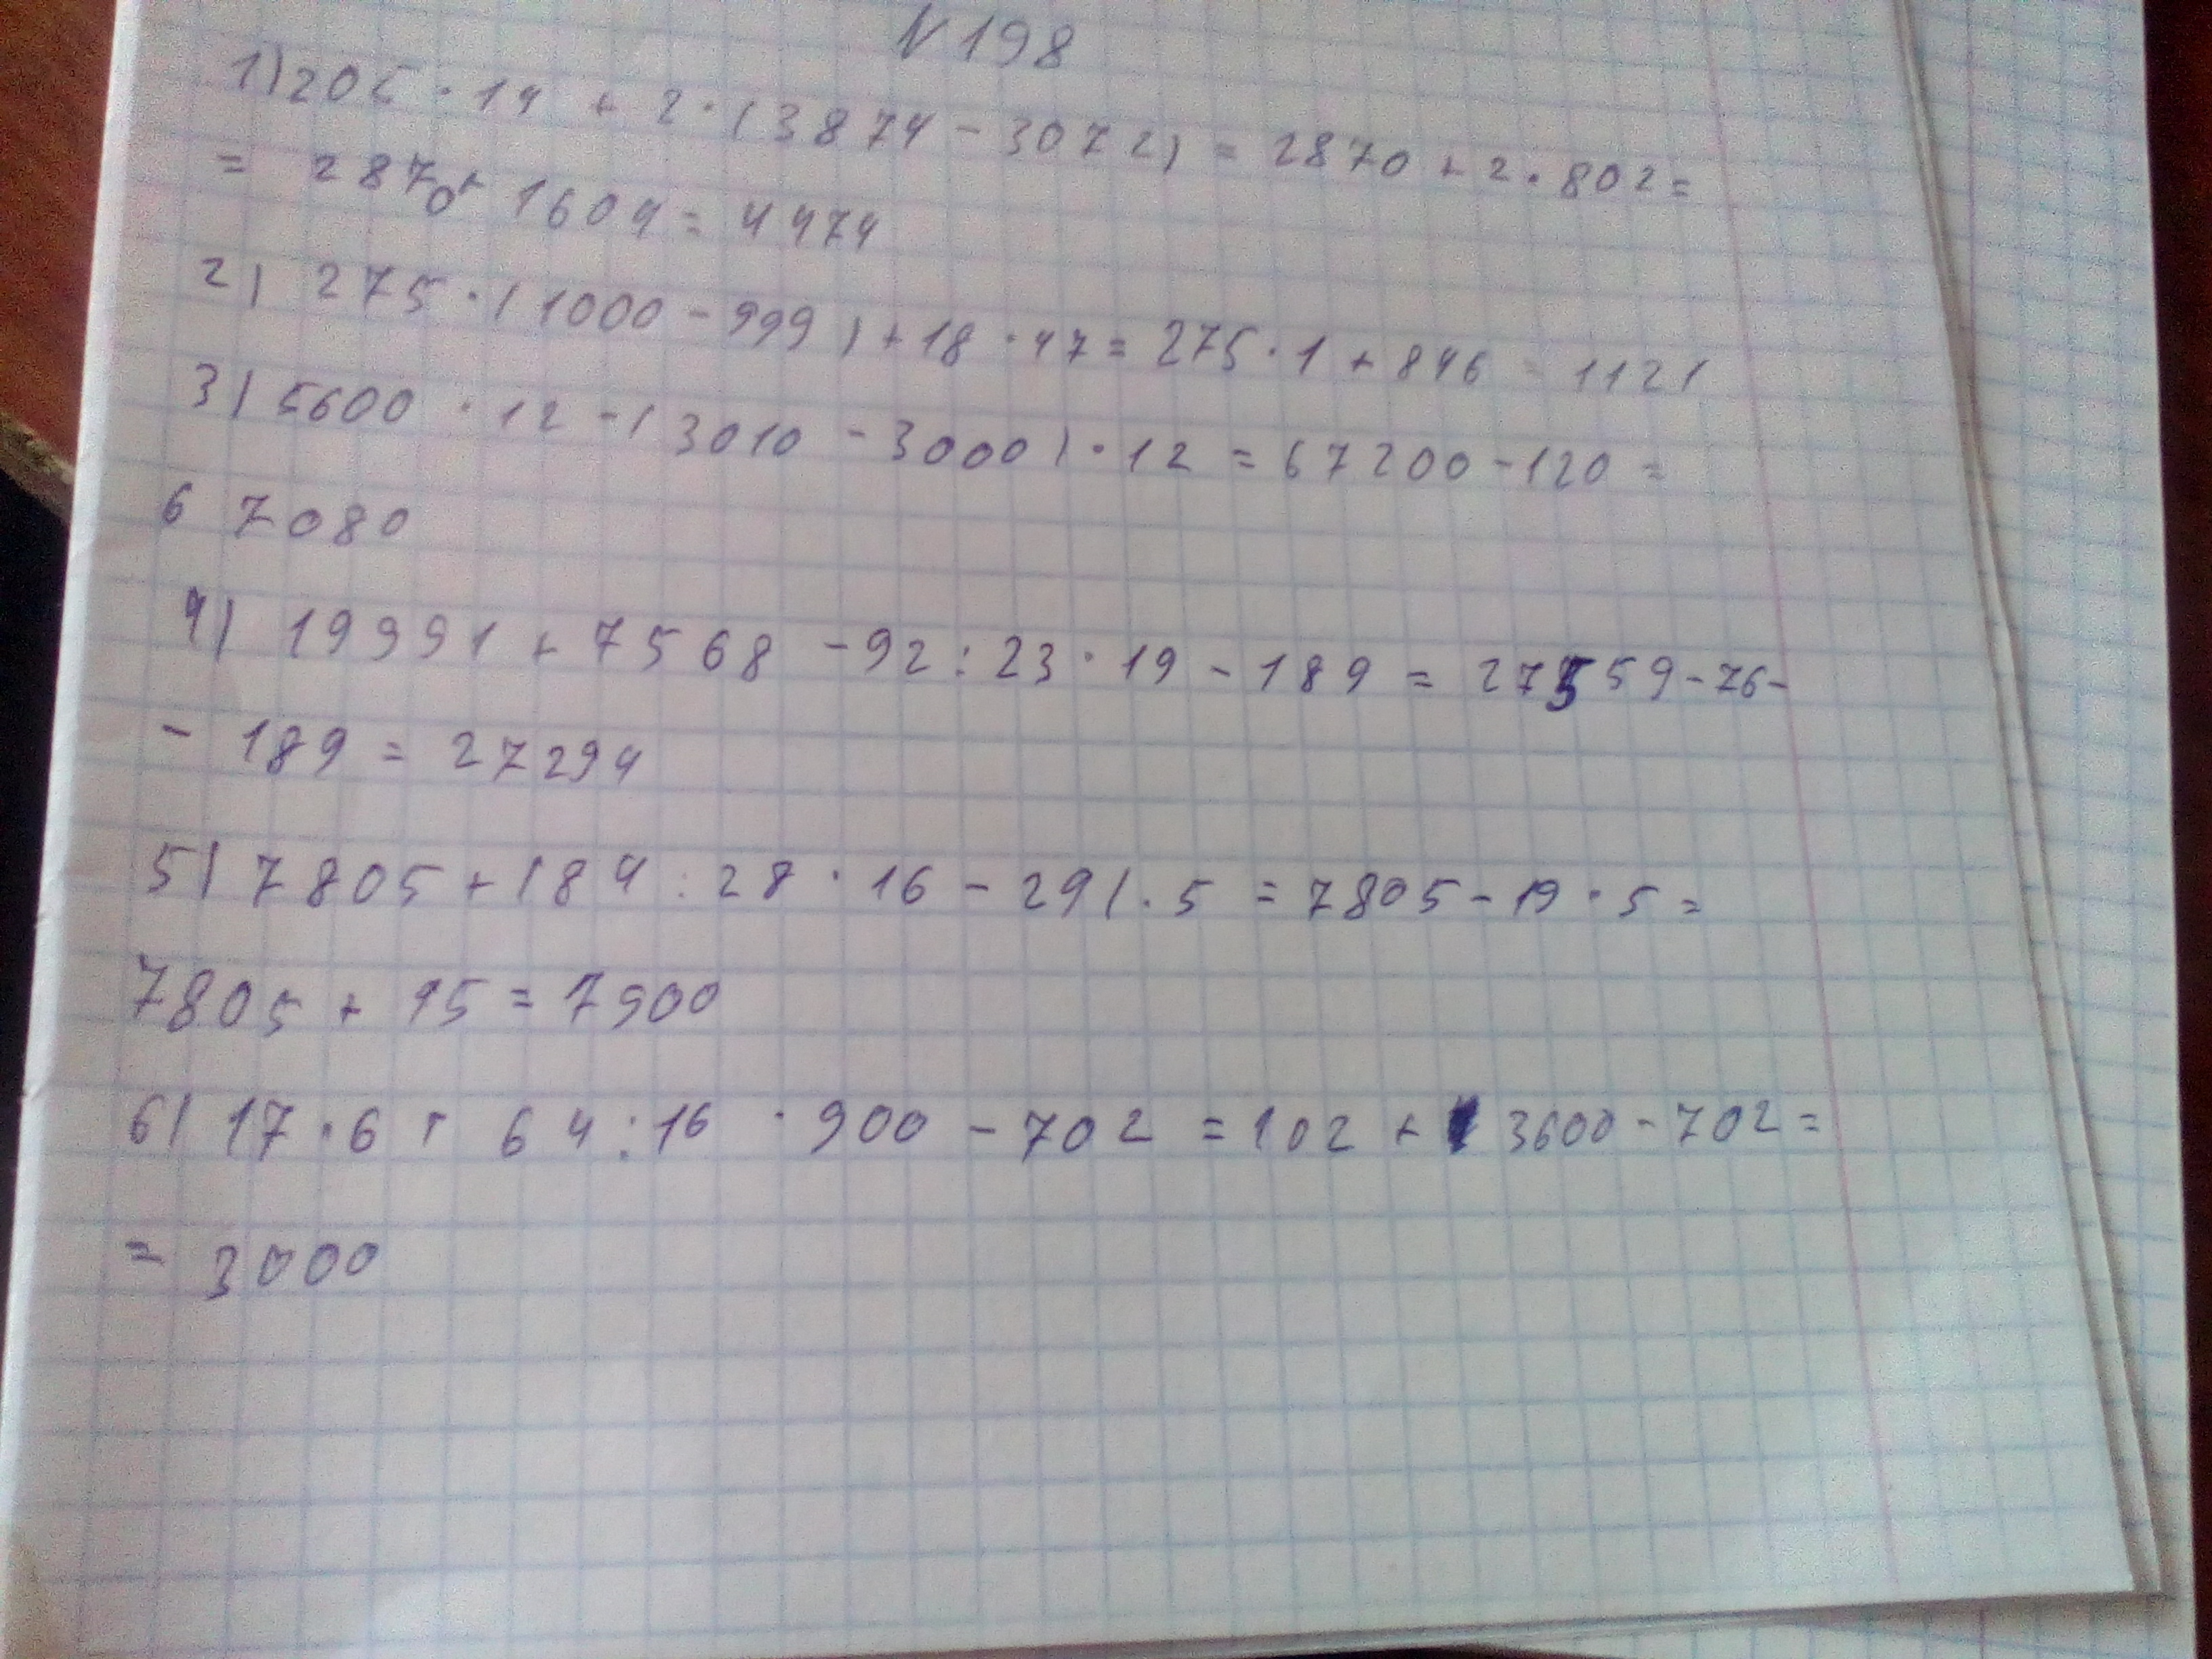 N 198
1) 205 · 14 + 2 · (3874 - 3072) = 2870 + 2 · 802 =
= 2870 + 1604 = 4474
2) 275 · (1000 - 999) + 18 · 47 = 275 · 1 + 846 = 1121
3) 5600 · 12 - (3010 - 3000) · 12 = 67200 - 120 =
67080
4) 19991 + 7568 - 92 : 23 · 19 - 189 = 27559 - 76 -
- 189 = 27294
5) 7805 + (84 : 28 · 16 - 29) · 5 = 7805 - 19 · 5 =
7805 + 95 = 7900
6) 17 · 6 + 64 : 16 · 900 - 702 = 102 + 3600 - 702 =
= 3000